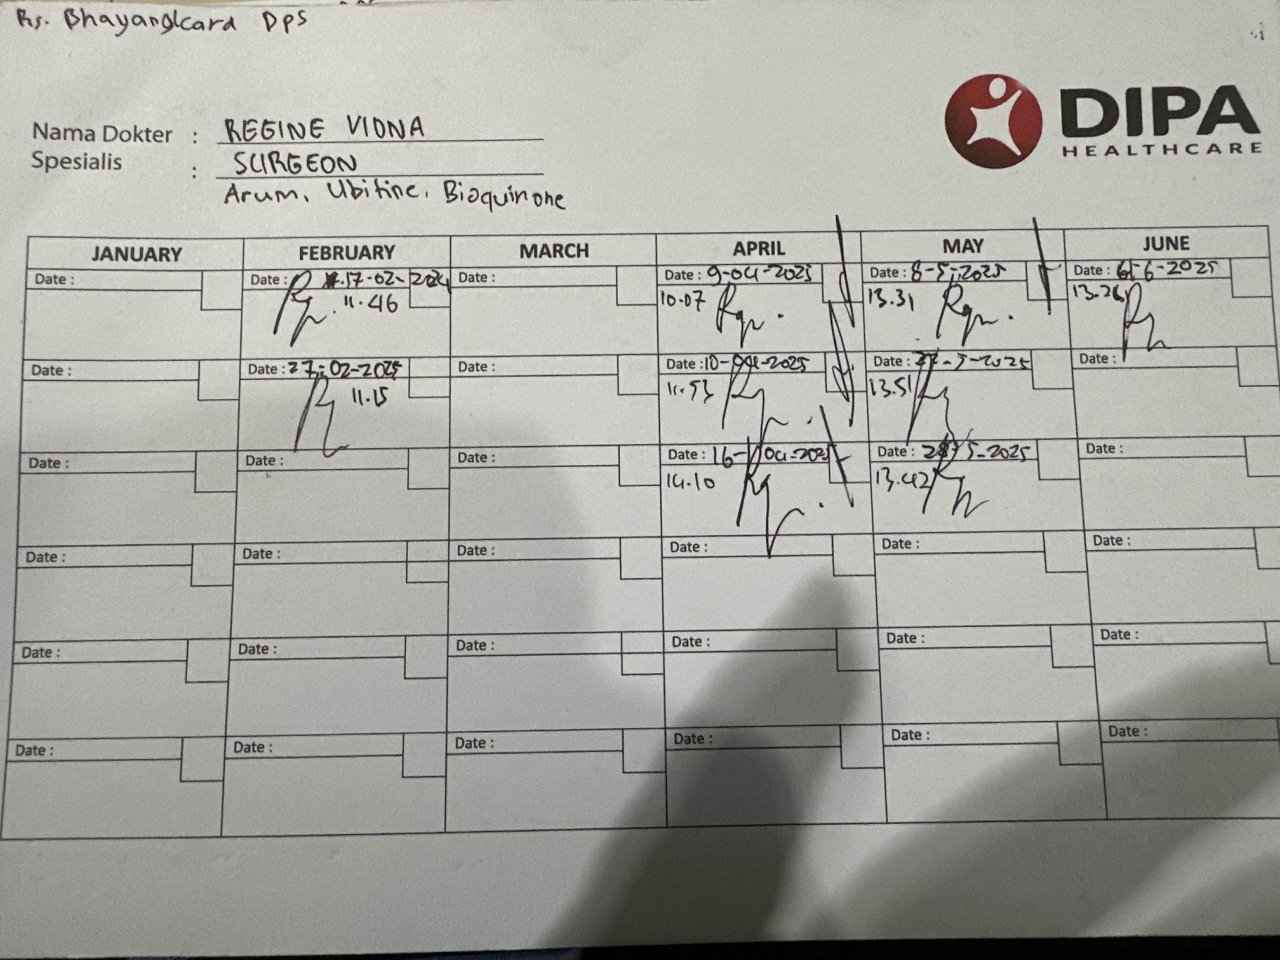 Rs. Bhayangkara Dps
DIPA
HEALTHCARE
Nama Dokter : REGINE VIDNA
Spesialis : SURGEON
Arum, Ubitine, Bioquinone
JANUARY FEBRUARY MARCH APRIL MAY JUNE
Date : Date : 17-02-2024 Date : Date : 9-04-2025 Date : 8-5-2025 Date : 6-6-2025
11.46 10.07 13.31 13.26
Date : Date : 27-02-2025 Date : Date : 10-04-2025 Date : 27-5-2025 Date :
11.15 11.53 13.51
Date : Date : Date : Date : 16-04-2025 Date : 28-5-2025 Date :
14.10 13.42
Date : Date : Date : Date : Date : Date :
Date : Date : Date : Date : Date : Date :
Date : Date : Date : Date : Date : Date :